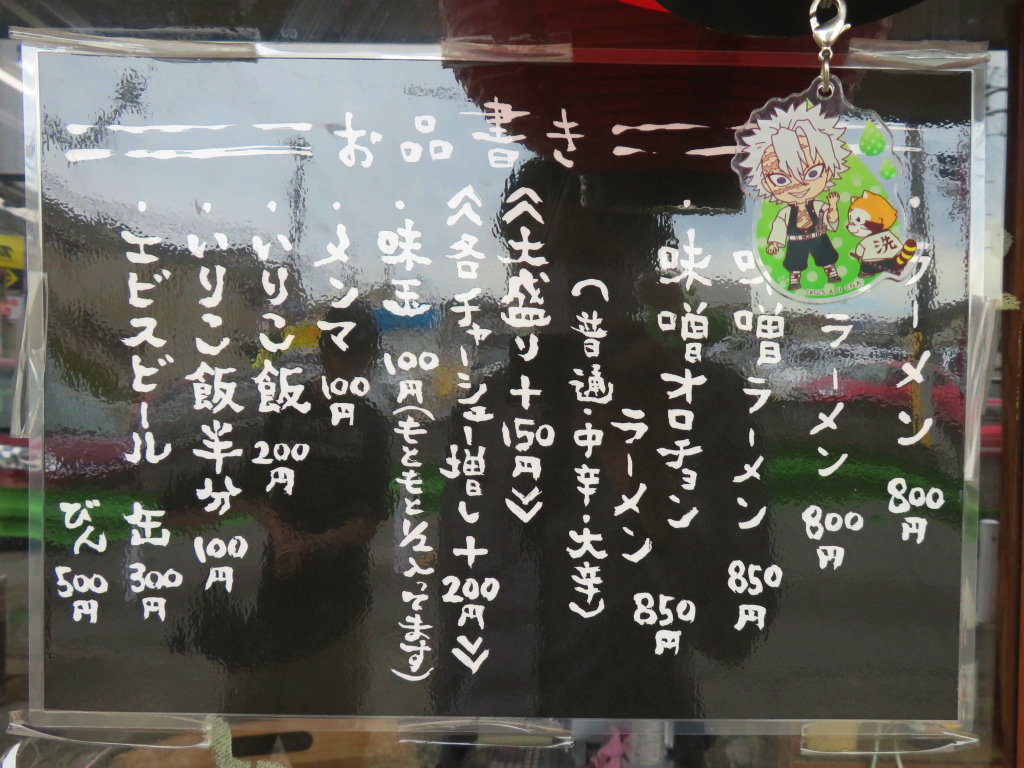 お品書き
ラーメン 800円
ラーメン 800円
味噌ラーメン 850円
・味噌オロチョン
ラーメン 850円
(普通・中辛・大辛)
《大盛り+150円》
《各チャーシュー増し+200円》
・味玉 100円(もともと1/2入ってます)
・メンマ 100円
・いりこ飯 200円
・いりこ飯半分 100円
・エビスビール 缶 300円
びん 500円
洗